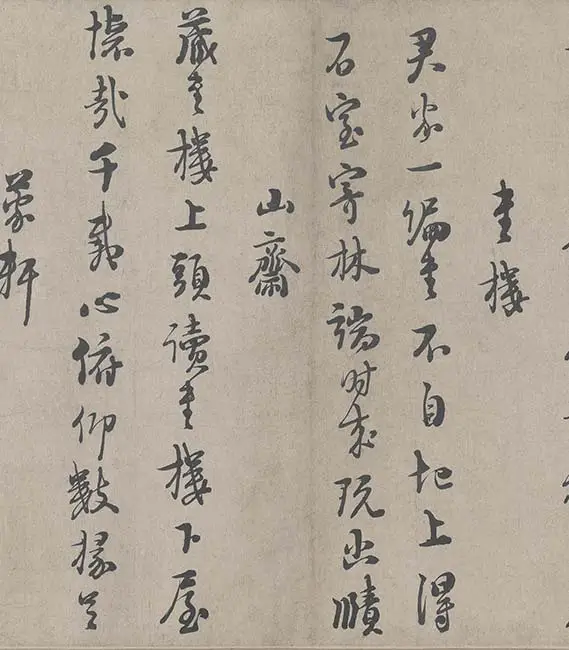 書樓
君家一編書不自圯上得
石室寄林端時來玩幽賾
山齋
藏書樓上頭讀書樓下屋
懷哉千載心俯仰數椽足
蒙軒